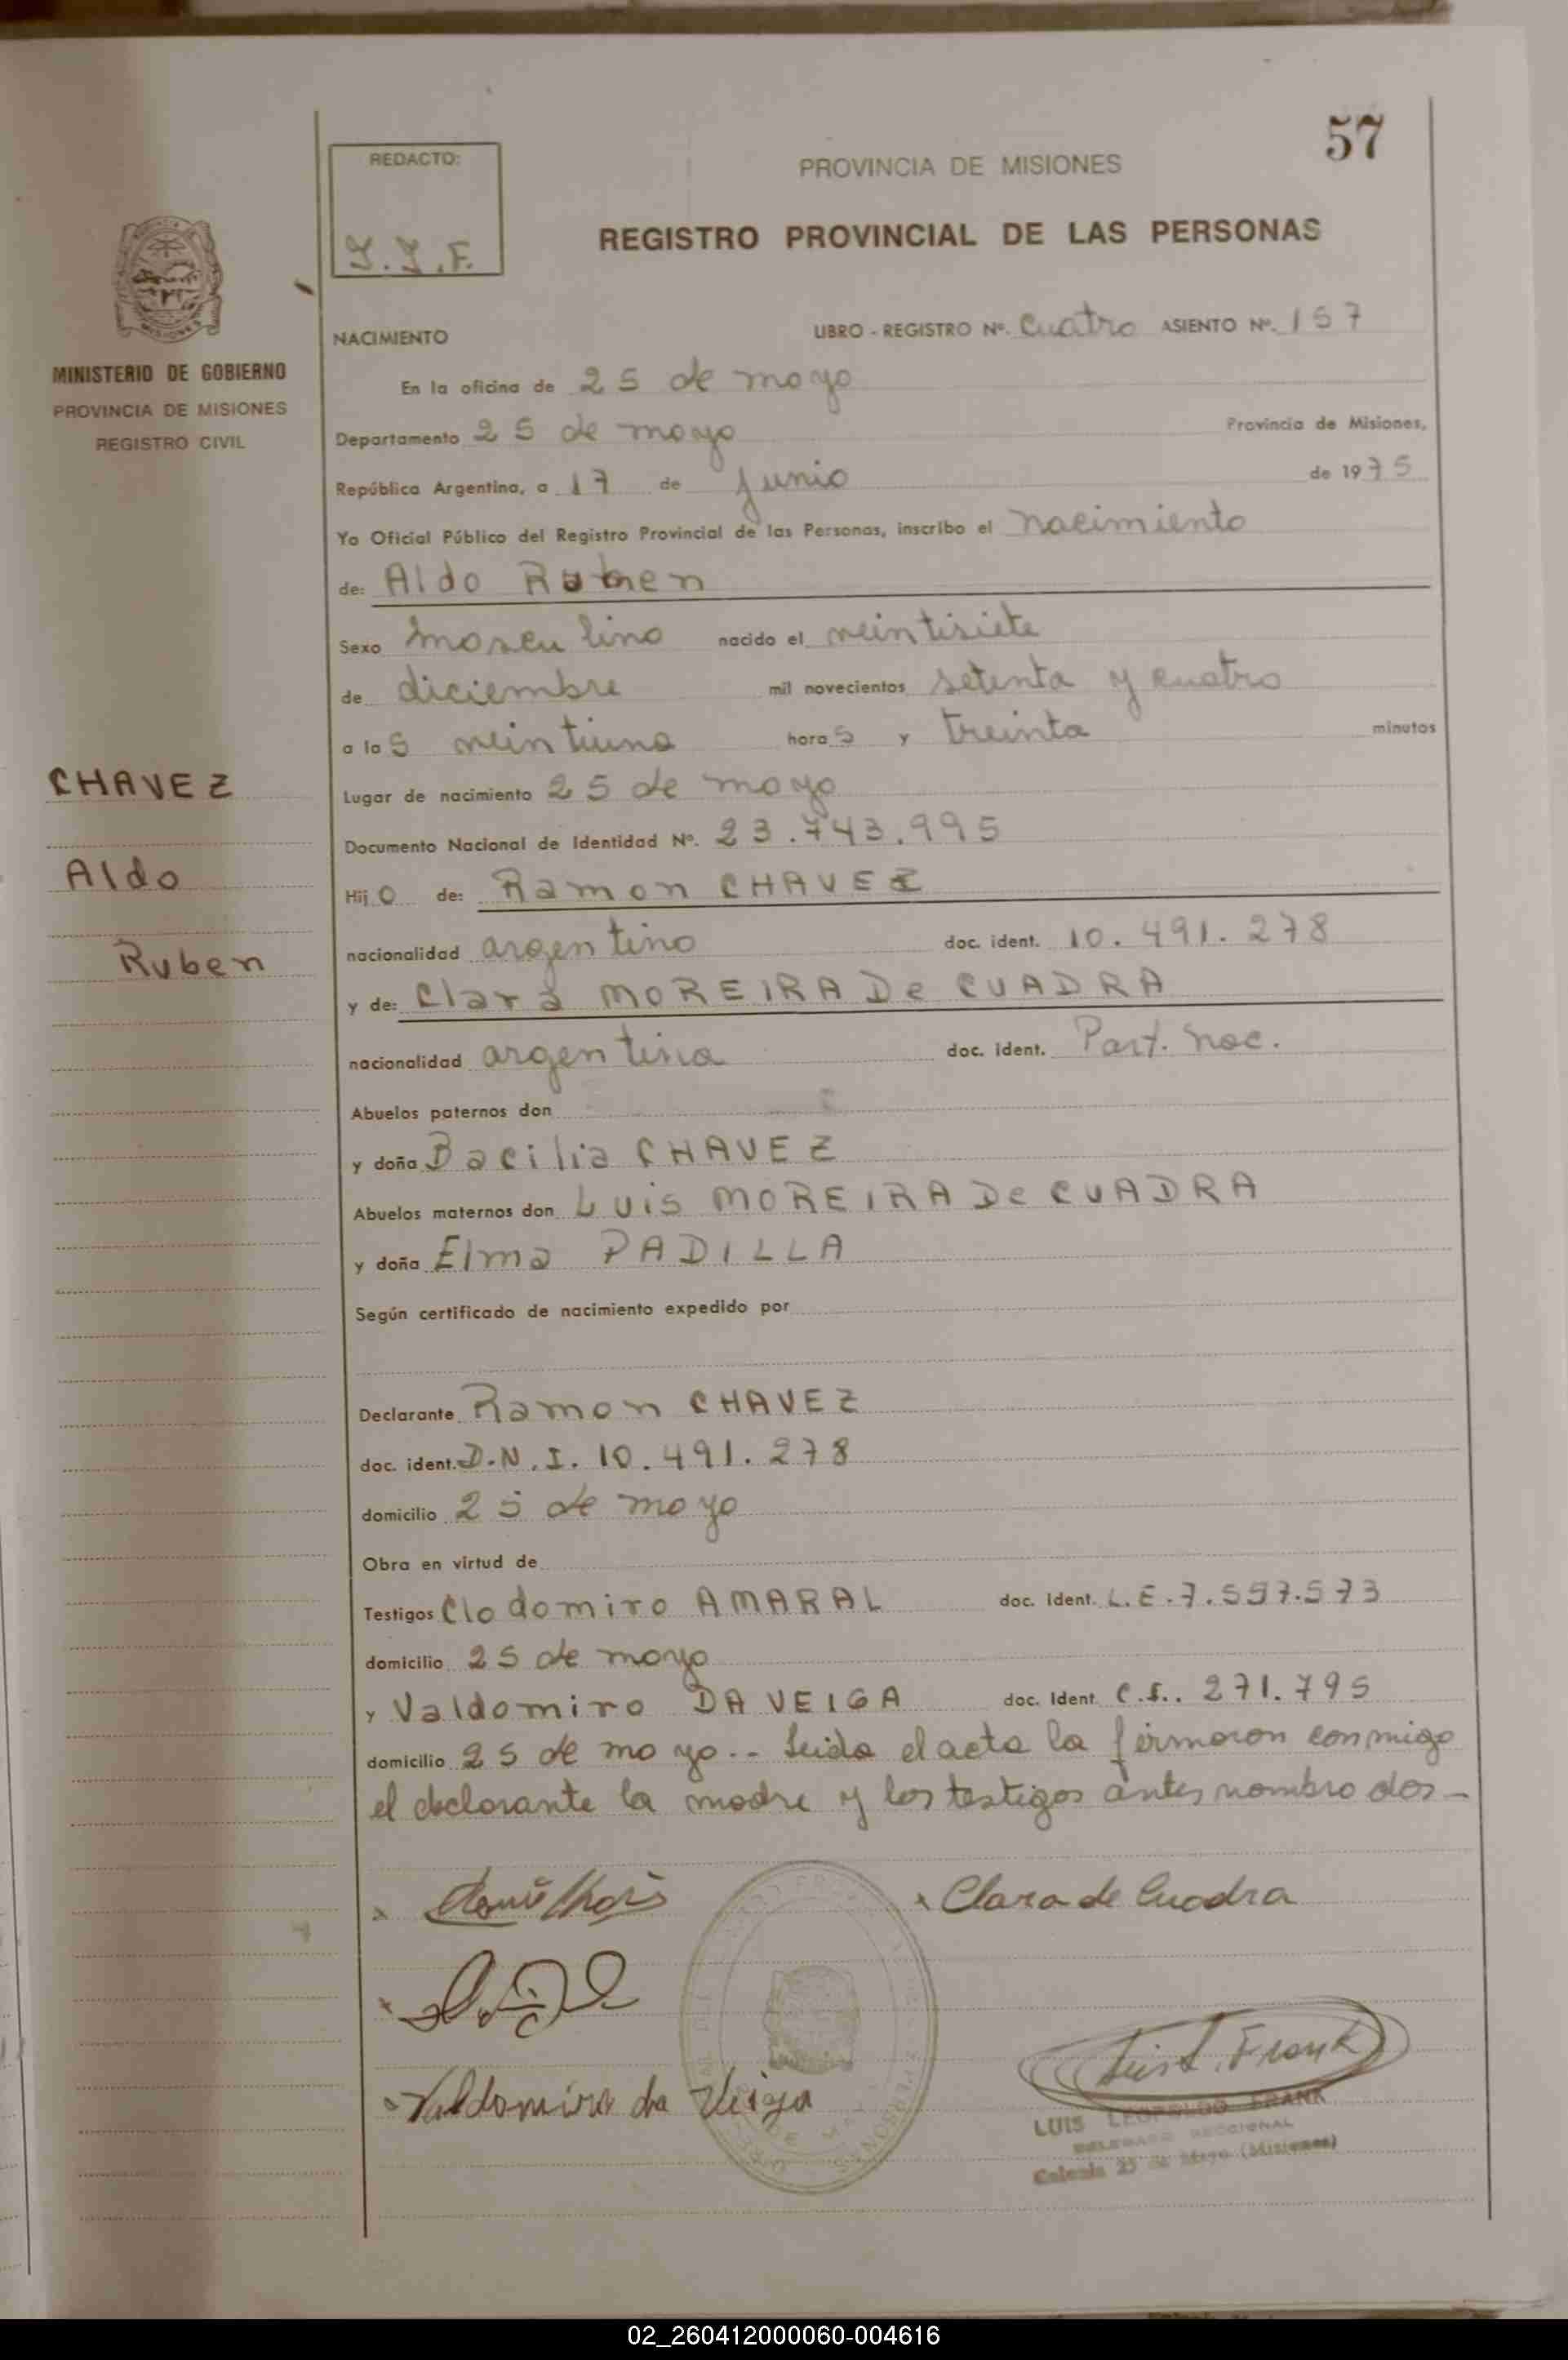 57
REDACTO:
PROVINCIA DE MISIONES
REGISTRO PROVINCIAL DE LAS PERSONAS
MINISTERIO DE GOBIERNO
PROVINCIA DE MISIONES
REGISTRO CIVIL
NACIMIENTO LIBRO - REGISTRO Nº. Cuatro ASIENTO Nº. 157
En la oficina de 25 de mayo
Departamento 25 de mayo Provincia de Misiones,
República Argentina, a 17 de junio de 1975
Yo Oficial Público del Registro Provincial de las Personas, inscribo el nacimiento
de: Aldo Ruben
Sexo masculino nacido el veintisiete
de diciembre mil novecientos setenta y cuatro
a las veintiuna horas y treinta minutos
CHAVEZ
Aldo
Ruben
Lugar de nacimiento 25 de mayo
Documento Nacional de Identidad Nº. 23.743.995
Hijo de: Ramon CHAVEZ
nacionalidad argentino doc. ident. 10.491.278
y de: Clara MOREIRA De CUADRA
nacionalidad argentina doc. ident. Part. nac.
Abuelos paternos don
y doña Bacilia CHAVEZ
Abuelos maternos don Luis MOREIRA De CUADRA
y doña Elma PADILLA
Según certificado de nacimiento expedido por
Declarante Ramon CHAVEZ
doc. ident. D.N.I. 10.491.278
domicilio 25 de mayo
Obra en virtud de
Testigos Clodomiro AMARAL doc. ident. L.E.7.557.573
domicilio 25 de mayo
y Valdomiro DA VEIGA doc. ident. C.I.. 271.795
domicilio 25 de mayo.- Leida el acta la firmaron conmigo
el declarante la madre y los testigos antes nombrados-
Clara de Cuadra
Valdomiro da Veiga
Luis L. Frank
LUIS LEOPOLDO FRANK
DELEGADO SECCIONAL
Colonia 25 de Mayo (Misiones)
02_260412000060-004616